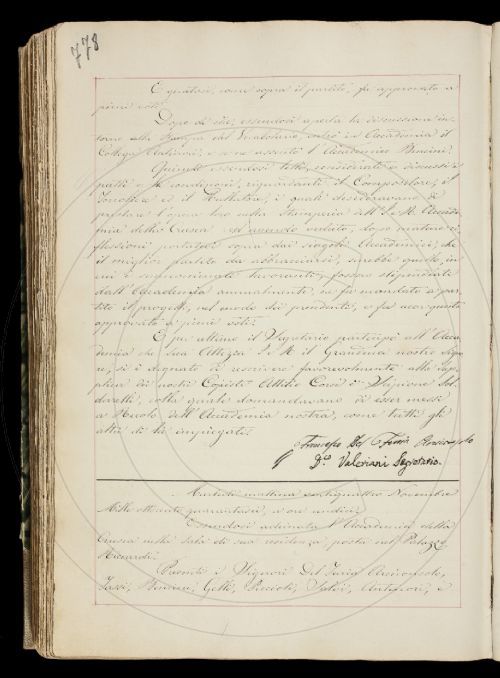 778
E quatosi, come sopra il partito, fu approvato a
pieni voti.
Dopo di ciò, essendosi aperta la discussione in-
torno alla Stampa del Vocabolario, entrò in Accademia il
Collega e se ne assentò l'Accademico Bencini.
Quindi essendosi letti, considerati e discussi i
patti e le condizioni, riguardanti il Compositore, il
Torcoliere ed il Battitore, i quali desideravano di
prestare l'opera loro nella Stamperia dell'I. e R. Accade-
mia della Crusca ed avendo veduto, dopo mature ri-
flessioni portate sopra dai singoli Accademici, che
il miglior partito da abbracciarsi, sarebbe quello, in
cui i summenzionati lavoranti, fossero stipendiati
dall'Accademia annualmente, ne fu mandato a par-
tito il progetto, nel modo dei precedenti, e fu
approvato a pieni voti.
E per ultimo il Segretario partecipò all'Acca-
demia che Sua Altezza I. e R. il Granduca nostro Signo-
re, si è degnato di rescrivere favorevolmente alla Sup-
plica dei nostri Copisti Attilio Corsi e Scipione
colla quale domandavano di esser messi
a Ruolo dell'Accademia nostra, come tutti gli
altri di lei impiegati.
Francesco Del Furia Arciconsolo
D.co Valeriani Segretario.
Martedì mattina ventiquattro Novembre
Mille ottocento quarantasei, a ore undici
Essendosi adunata l'Accademia della
Crusca nella Sala di sua residenza posta nel Palazzo
Riccardi.
Presenti i Signori Del Furia Arciconsolo,
Tassi, Bencini, Gelli, Piccioli, Salvi, Antinori, e